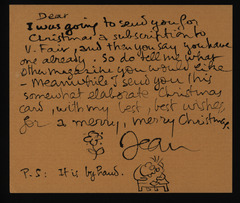 Dear
I was going to send you for
Christmas a subscription to
V-Fair, and then you say you have
one already. So do tell me what
other magazine you would like
- Meanwhile I send you this
somewhat elaborate Christmas
card, with my best, best wishes
for a merry, merry Christmas.
Jean
P.S: It is by hand.